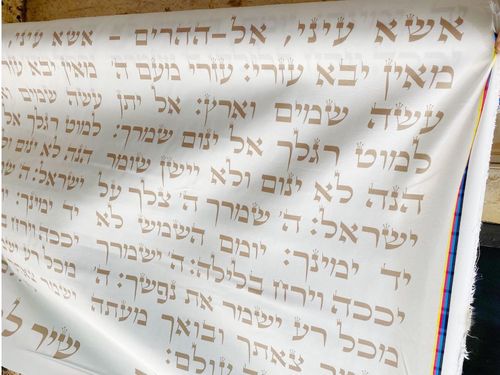 אשא עיני, אל-ההרים - אשא עיני,
מאין יבא עזרי: עזרי מעם ה' מאין יבא
עשה שמים וארץ: אל יתן עשה שמים
למוט רגלך אל ינום שמרך: למוט רגלך אל
הנה לא ינום ולא יישן שומר הנה לא
ישראל: ה' שמרך ה' צלך על ישראל: ה'
יד ימינך: יומם השמש לא יד ימינך:
יככה וירח בלילה: ה' ישמרך יככה
מכל רע ישמר את נפשך: ה' מכל רע
צאתך ובואך מעתה ישמר
עולם: שיר